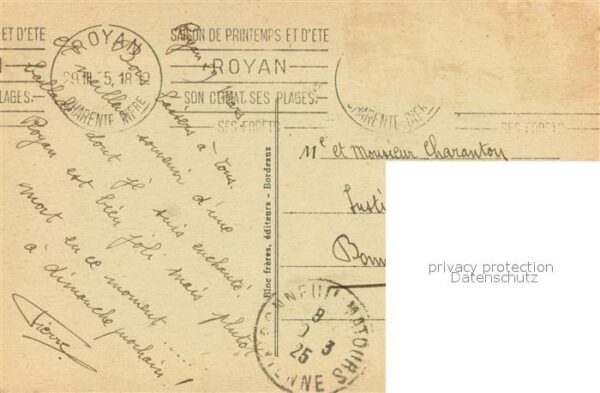 SAISON DE PRINTEMPS ET D'ETE
ROYAN
SON CLIMAT. SES PLAGES.
SES FORETS
ET D'ETE
PLAGES.
ROYAN
18
CHARENTE INFRE
CHARENTE INFRE
SES FORETS
Royan 29 Mars
Bons baisers à tous.
et meilleur souvenir d'une
ballade dont je suis enchanté.
Royan est bien joli mais plutôt
mort en ce moment .....
à dimanche prochain !
Pierre
Bloc frères, éditeurs - Bordeaux
Me et Monsieur Charanton
Insti
Bonn
BONNEUIL-MATOURS
8
3
25
VIENNE
privacy protection
Datenschutz